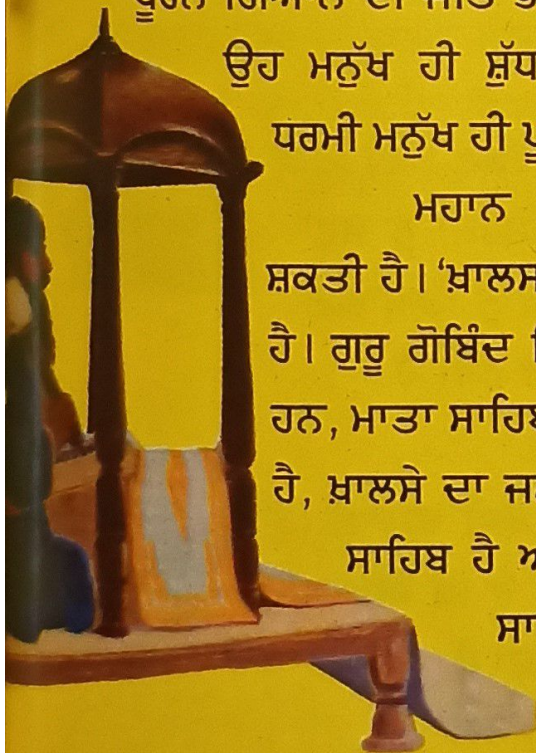 ਉਹ ਮਨੁੱਖ ਹੀ ਸ਼ੁੱਧ
ਧਰਮੀ ਮਨੁੱਖ ਹੀ
ਮਹਾਨ
ਸ਼ਕਤੀ ਹੈ। ‘ਖ਼ਾਲਸ
ਹੈ। ਗੁਰੂ ਗੋਬਿੰਦ
ਹਨ, ਮਾਤਾ ਸਾਹਿਬ
ਹੈ, ਖ਼ਾਲਸੇ ਦਾ ਜ
ਸਾਹਿਬ ਹੈ ਅ
ਸਾ